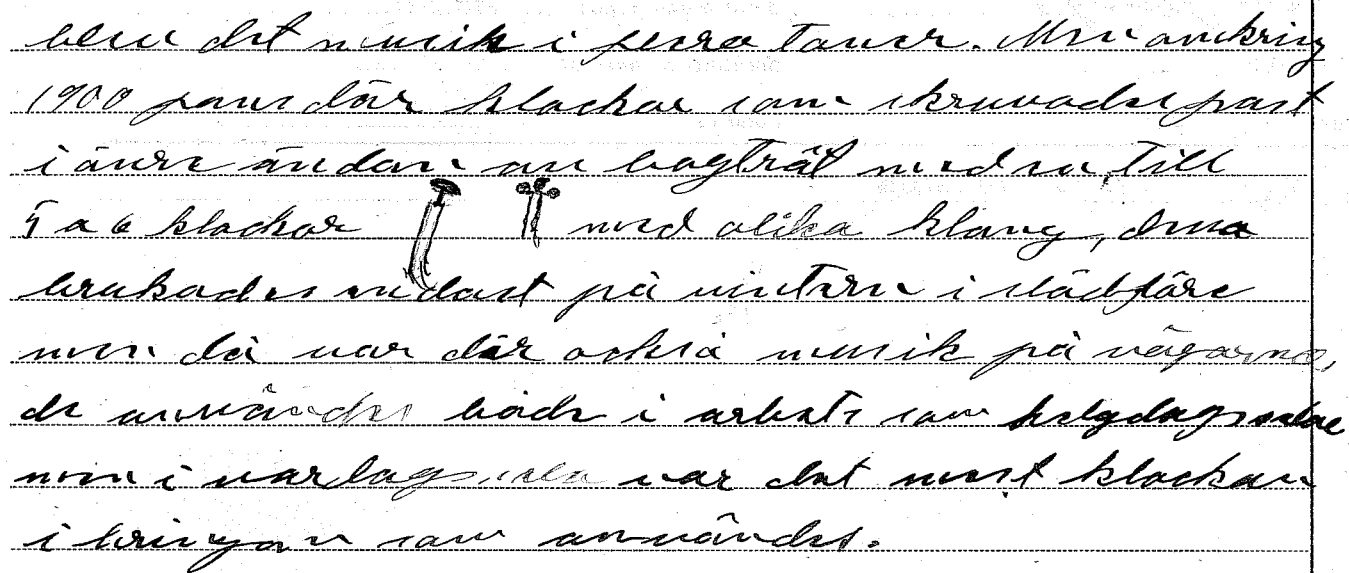 blev det musik i flera toner. Men omkring
1900 fans där klockor som skruvades fast
i övre ändan av bogträt med en till
5 a 6 klockor med olika klang, dessa
brukades endast på vintern i slädföre
men då var där också musik på vägarna,
de användes både i arbets som helgdagsselar
men i vardagssela var det mest klockan
i bringan som användes.